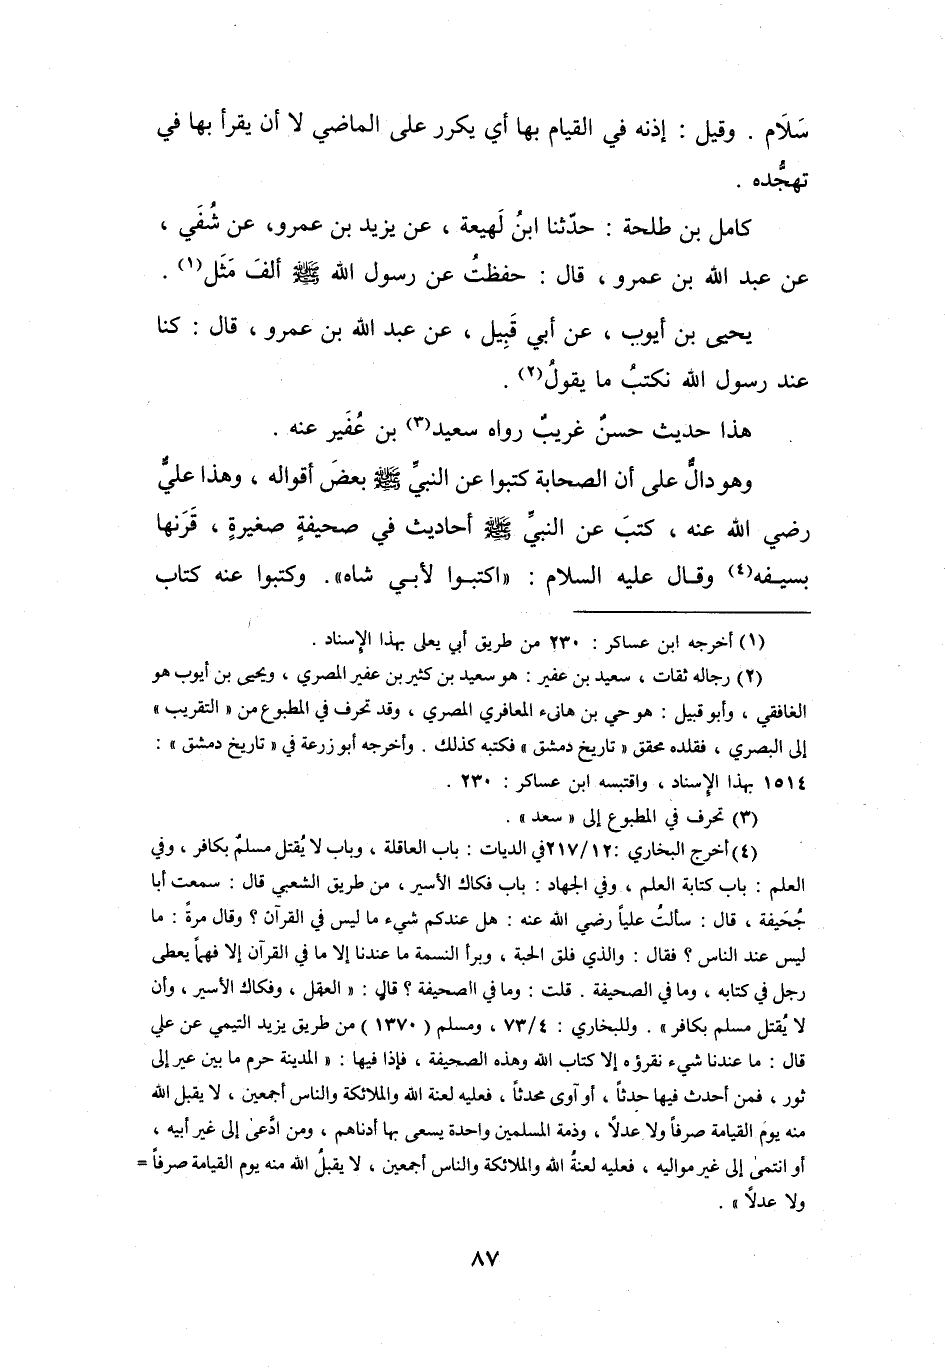 سَلَام . وقيل : إذنه في القيام بها أي يكرر على الماضي لا أن يقرأ بها في
تهجُّده .
كامل بن طلحة : حدّثنا ابنُ لَهيعة ، عن يزيد بن عمرو، عن شُفَي ،
عن عبد الله بن عمرو ، قال : حفظتُ عن رسول الله ﷺ ألفَ مَثَل(١) .
يحيى بن أيوب ، عن أبي قَبِيل ، عن عبد الله بن عمرو ، قال : كنا
عند رسول الله نكتبُ ما يقولُ(٢) .
هذا حديث حسنٌ غريبٌ رواه سعيد(٣) بن عُفَير عنه .
وهو دالٌّ على أن الصحابة كتبوا عن النبيِّ ﷺ بعضَ أقواله ، وهذا عليٌّ
رضي الله عنه ، كتبَ عن النبيِّ ﷺ أحاديث في صحيفةٍ صغيرةٍ ، قَرَنها
بسيفه(٤) وقال عليه السلام : «اكتبوا لأبي شاه». وكتبوا عنه كتاب
(١) أخرجه ابن عساكر : ٢٣٠ من طريق أبي يعلى بهذا الإسناد .
(٢) رجاله ثقات ، سعيد بن عفير : هو سعيد بن كثير بن عفير المصري ، ويحيى بن أيوب هو
الغافقي ، وأبو قبيل : هو حي بن هانىء المعافري المصري ، وقد تحرف في المطبوع من « التقريب »
إلى البصري ، فقلده محقق « تاريخ دمشق » فكتبه كذلك . وأخرجه أبو زرعة في « تاريخ دمشق » :
١٥١٤ بهذا الإسناد ، واقتبسه ابن عساكر : ٢٣٠ .
(٣) تحرف في المطبوع إلى « سعد » .
(٤) أخرج البخاري :٢١٧/١٢في الديات : باب العاقلة ، وباب لا يُقتل مسلمٌ بكافر ، وفي
العلم : باب كتابة العلم ، وفي الجهاد : باب فكاك الأسير ، من طريق الشعبي قال : سمعت أبا
جُحَيفة ، قال : سألتُ علياً رضي الله عنه : هل عندكم شيء ما ليس في القرآن ؟ وقال مرةً : ما
ليس عند الناس ؟ فقال : والذي فلق الحبة ، وبرأ النسمة ما عندنا إلا ما في القرآن إلا فهماً يعطى
رجل في كتابه ، وما في الصحيفة . قلت : وما في الصحيفة ؟ قال : « العقل ، وفكاك الأسير ، وأن
لا يُقتل مسلم بكافر » . وللبخاري : ٧٣/٤ ، ومسلم ( ١٣٧٠ ) من طريق يزيد التيمي عن علي
قال : ما عندنا شيء نقرؤه إلا كتاب الله وهذه الصحيفة ، فإذا فيها : « المدينة حرم ما بين عير إلى
ثور ، فمن أحدث فيها حدثاً ، أو آوى محدثاً ، فعليه لعنة الله والملائكة والناس أجمعين ، لا يقبل الله
منه يوم القيامة صرفاً ولا عدلاً ، وذمة المسلمين واحدة يسعى بها أدناهم ، ومن ادَّعىٰ إلى غير أبيه ،
أو انتمىٰ إلى غير مواليه ، فعليه لعنةُ الله والملائكة والناس أجمعين ، لا يقبلُ الله منه يوم القيامة صرفاً =
ولا عدلاً » .
٨٧